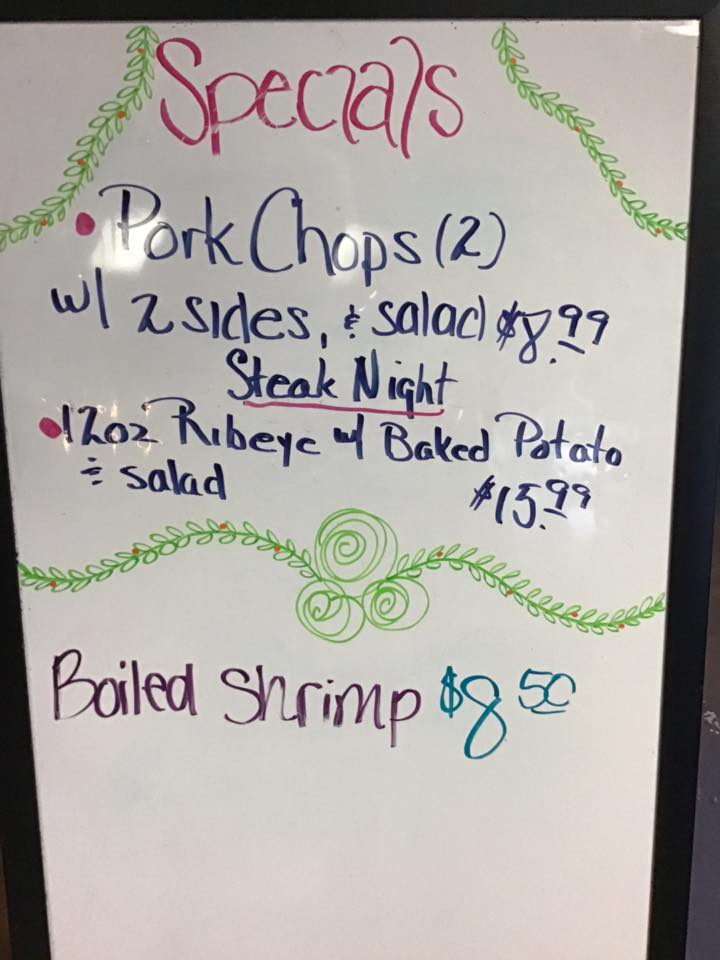 Specials
• Pork Chops (2)
w/ 2 sides, & salad $8.99
Steak Night
• 12oz Ribeye w/ Baked Potato
& salad $15.99
Boiled Shrimp $8 50